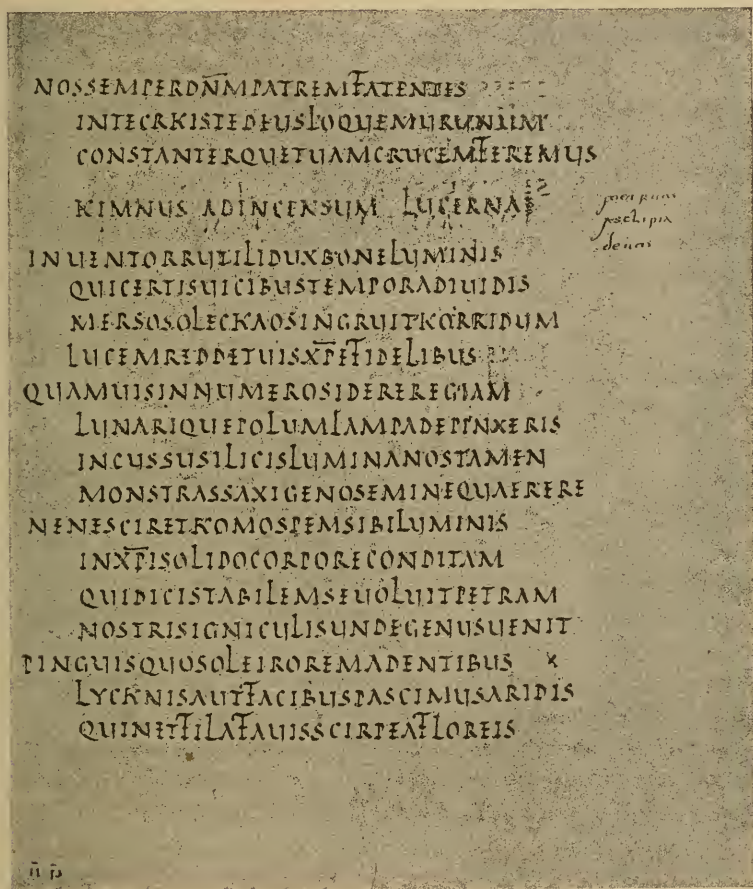 NOSSEMPERDN̄MPATREMFATENTES
INTECHRISTEDEUSLOQUEMURUNUM
CONSTANTERQUETUAMCRUCEMFEREMUS
HIMNUS ADINCENSUM LUCERNAE
INUENTORRUTILIDUXBONELUMINIS
QUICERTISUICIBUSTEMPORADIUIDIS
MERSOSOLECHAOSINGRUITHORRIDUM
LUCEMREDDETUISXP̄EFIDELIBUS
QUAMUISINNUMEROSIDEREREGIAM
LUNARIQUEPOLUMLAMPADEPINXERIS
INCUSSUSILICISLUMINANOSTAMEN
MONSTRASSAXIGENOSEMINEQUAERERE
NENESCIRETHOMOSPEMSIBILUMINIS
INXP̄ISOLIDOCORPORECONDITAM
QUIDICISTABILEMSEUOLUITPETRAM
NOSTRISIGNICULISUNDEGENUSUENIT
PINGUISQUOSOLEIROREMADENTIBUS X
LYCHNISAUTFACIBUSPASCIMUSARIDIS
QUINETFILAFAUISSCIRPEAFLOREIS